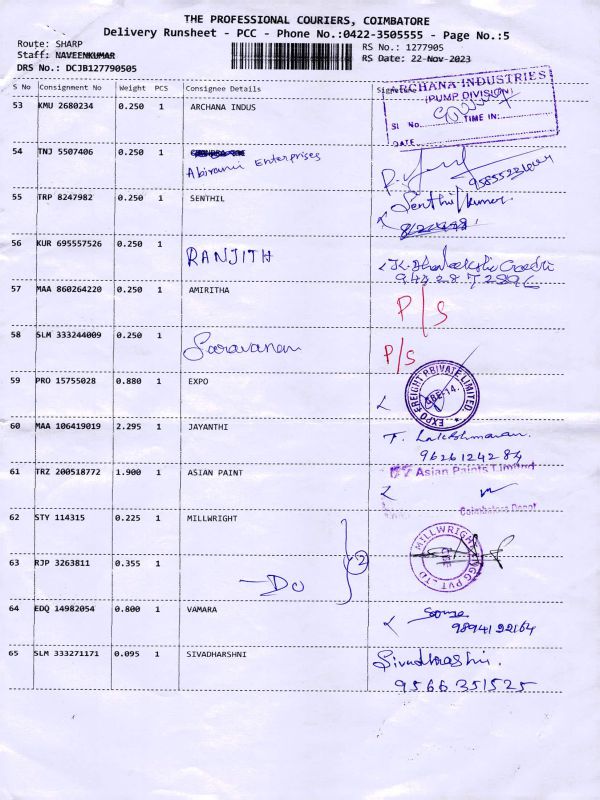 THE PROFESSIONAL COURIERS, COIMBATORE
Delivery Runsheet - PCC - Phone No.:0422-3505555 - Page No.:5
Route: SHARP
RS No.: 1277905
Staff: NAVEENKUMAR
RS Date: 22-Nov-2023
DRS No.: DCJB127790505
S No Consignment No Weight PCS Consignee Details Signature
ARCHANA INDUSTRIES
(PUMP DIVISION)
SI No. TIME IN:
DATE
53 KMU 2680234 0.250 1 ARCHANA INDUS
54 TNJ 5507406 0.250 1
Abirami Enterprises
55 TRP 8247982 0.250 1 SENTHIL Senthil kumar
56 KUR 695557526 0.250 1 RANJITH
57 MAA 860264220 0.250 1 AMIRITHA P/S
58 SLM 333244009 0.250 1 Saravanan P/S
59 PRO 15755028 0.880 1 EXPO
EXPO FREIGHT PRIVATE LIMITED
CBE-14.
60 MAA 106419019 2.295 1 JAYANTHI T. Lakshmanan.
9626124284
61 TRZ 200518772 1.900 1 ASIAN PAINT Asian Paints Limited
Coimbatore Depot
62 STY 114315 0.225 1 MILLWRIGHT
2
MILLWRIGHT ENGG PVT LTD
CBE
63 RJP 3263811 0.355 1 —Do
64 EDQ 14982054 0.800 1 VAMARA
9894122164
65 SLM 333271171 0.095 1 SIVADHARSHNI Sivadharshni.
9566351525